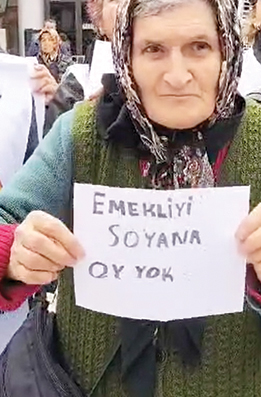 EMEKLİYİ
SOYANA
OY YOK